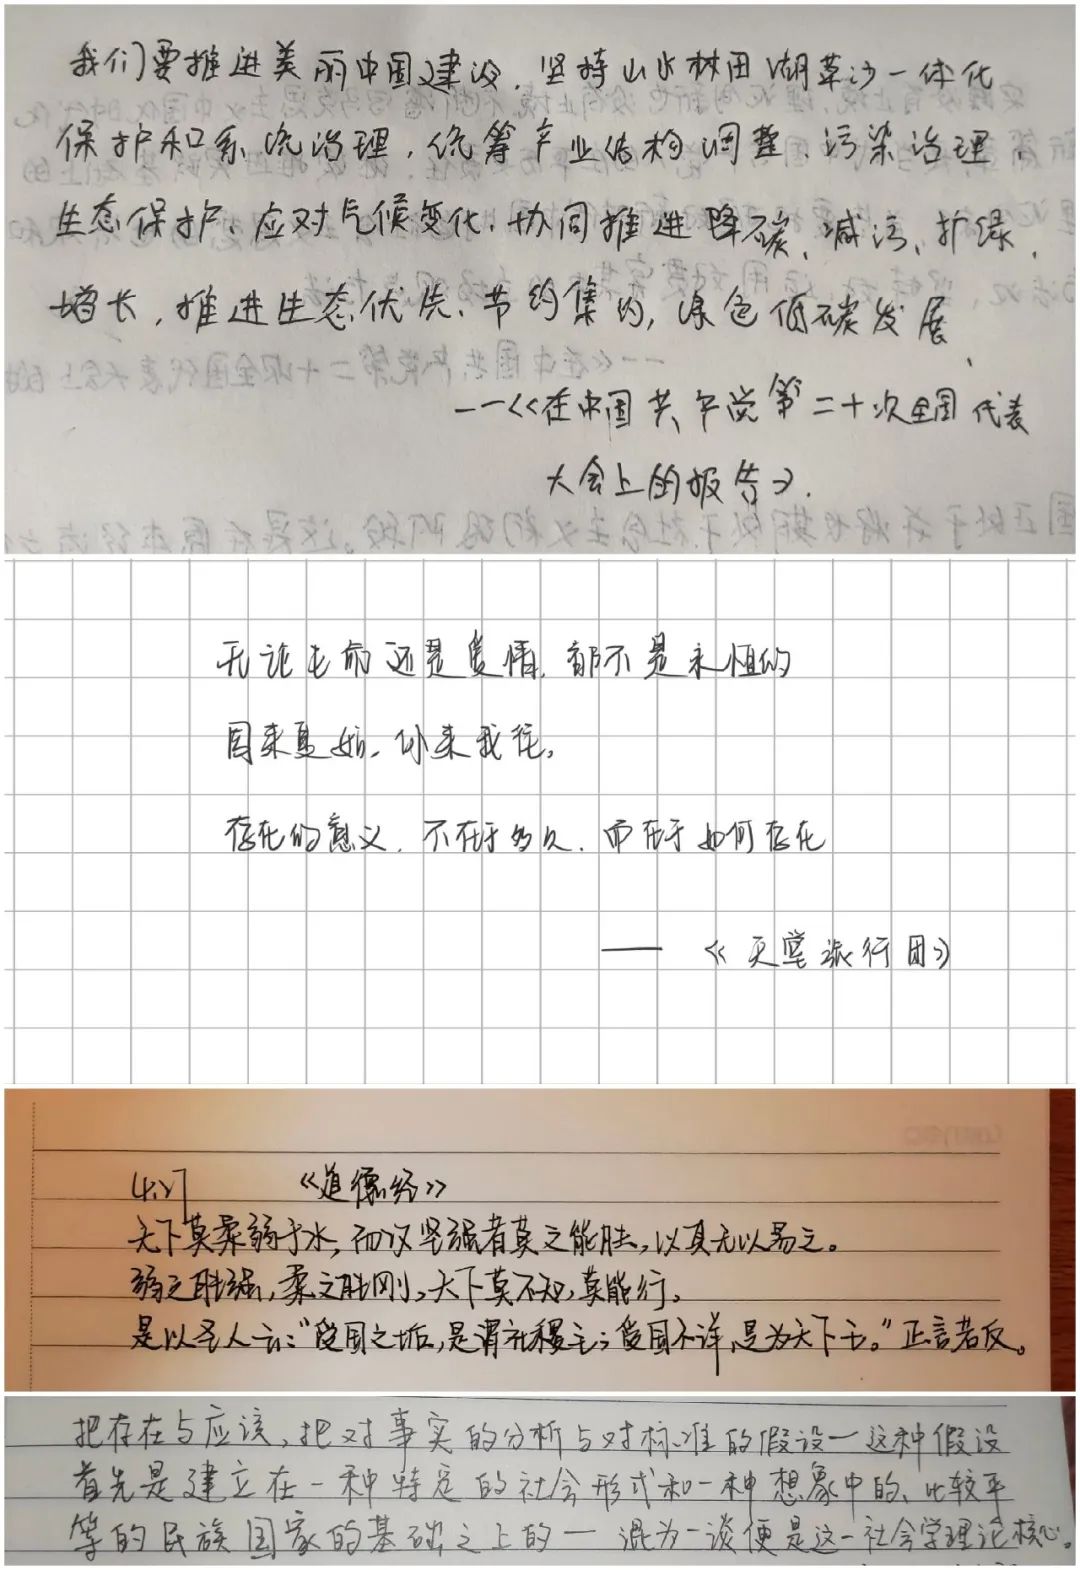 我们要推进美丽中国建设，坚持山水林田湖草沙一体化
保护和系统治理，统筹产业结构调整、污染治理、
生态保护、应对气候变化，协同推进降碳、减污、扩绿、
增长，推进生态优先、节约集约，绿色低碳发展、
——《在中国共产党第二十次全国代表
大会上的报告》.
无论生命还是爱情，都不是永恒的
周来复始，你来我往。
存在的意义，不在于多久，而在于如何存在
——《天堂旅行团》
4.27 《道德经》
天下莫柔弱于水，而攻坚强者莫之能胜，以其无以易之。
弱之胜强，柔之胜刚，天下莫不知，莫能行。
是以圣人云：“受国之垢，是谓社稷主；受国不祥，是为天下王。”正言若反。
把存在与应该，把对事实的分析与对标准的假设—这种假设
首先是建立在一种特定的社会形式和一种想象中的、比较平
等的民族国家的基础之上的— 混为一谈便是这一社会学理论核心。